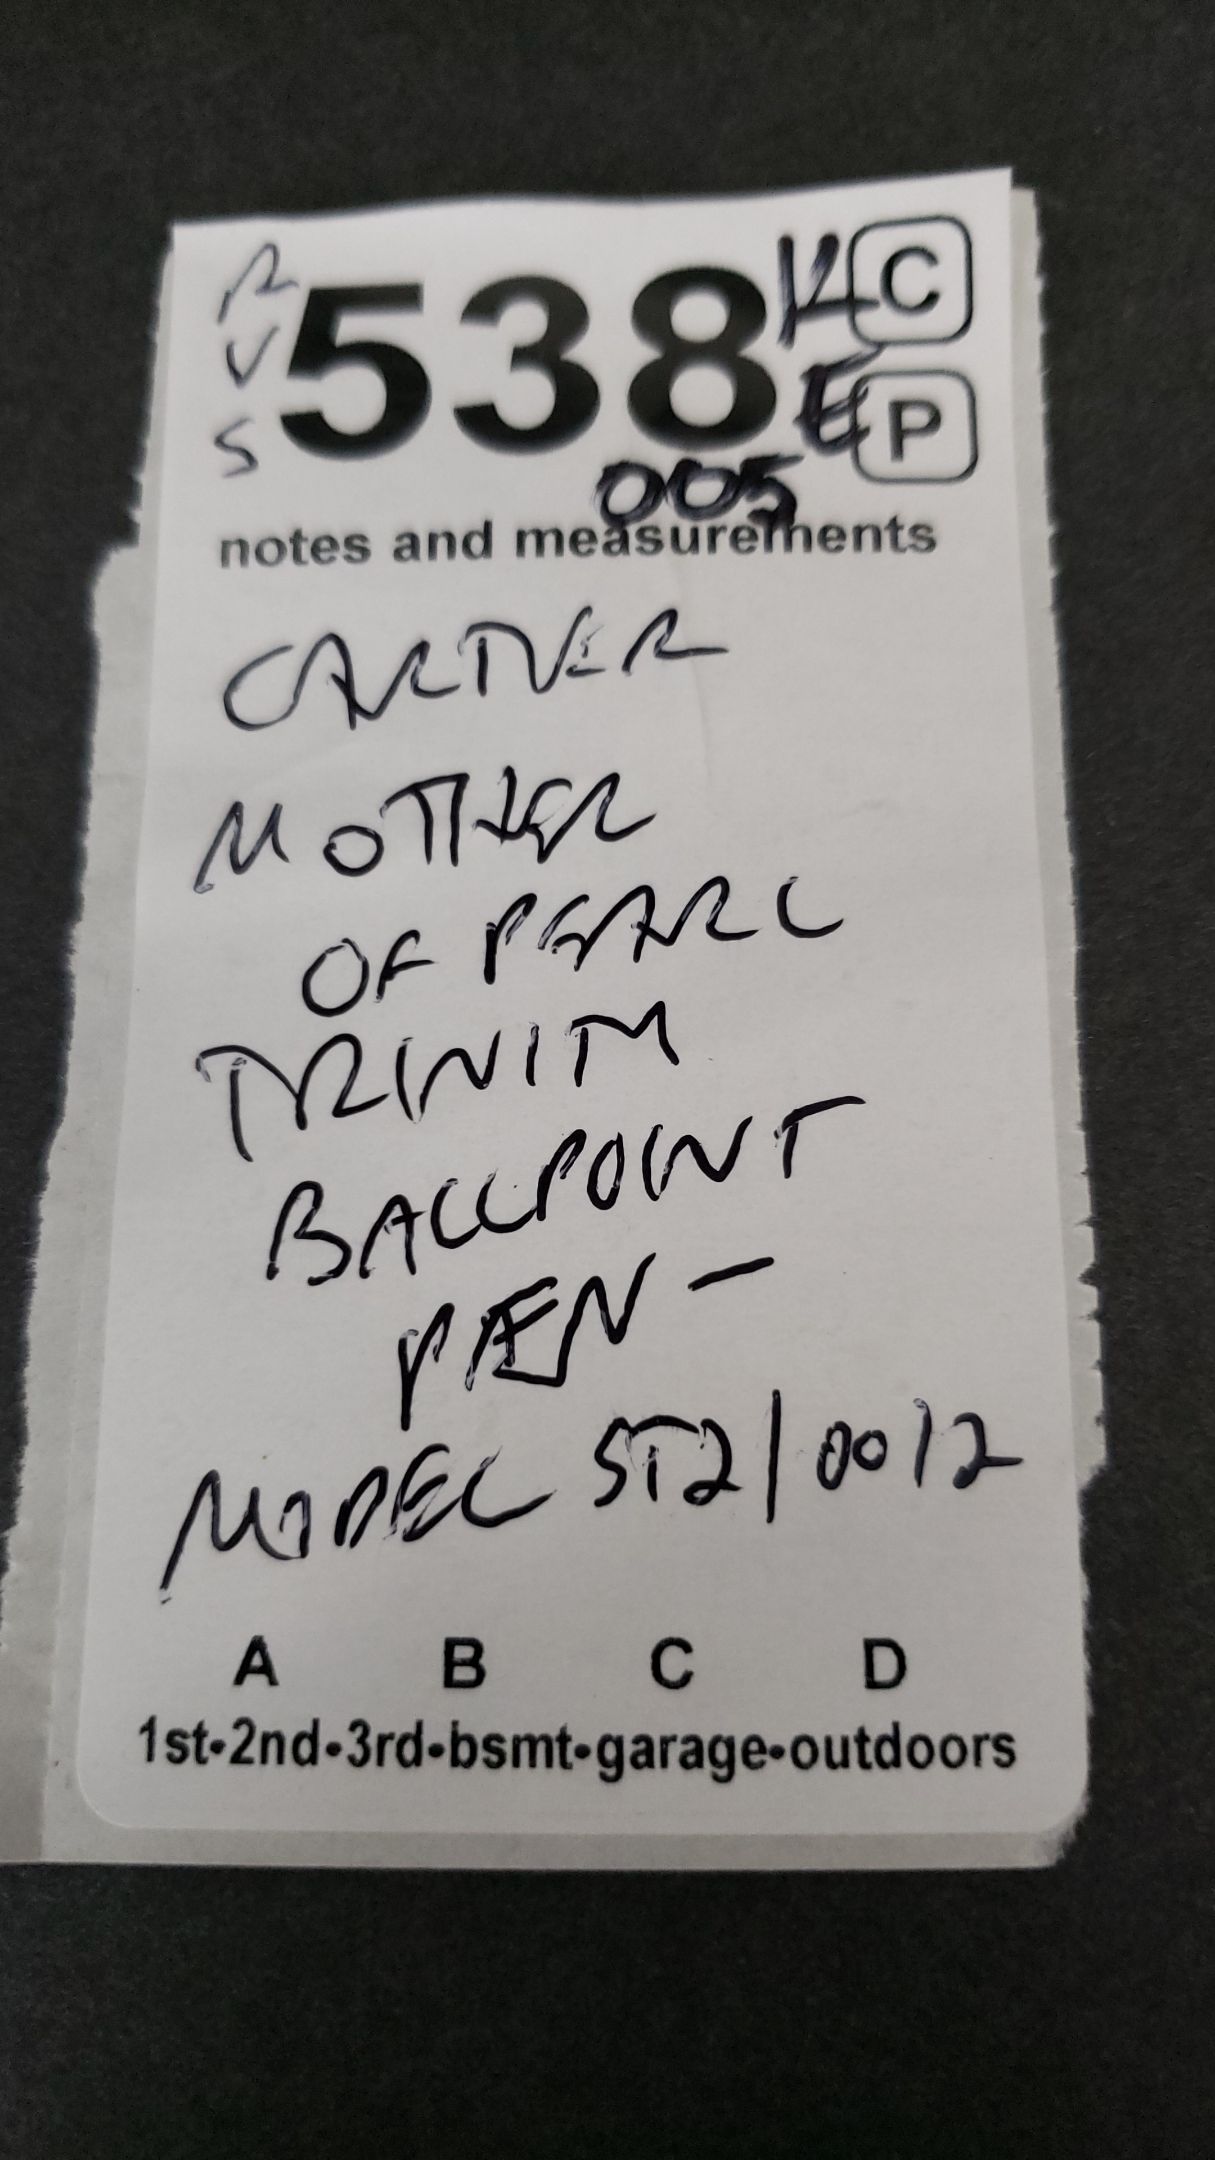 R
V
S
538
K
C
E
P
005
notes and measurements
CARTIER
MOTHER
OF PEARL
TRINITY
BALLPOINT
PEN -
MODEL ST2/0012
A B C D
1st•2nd•3rd•bsmt•garage•outdoors